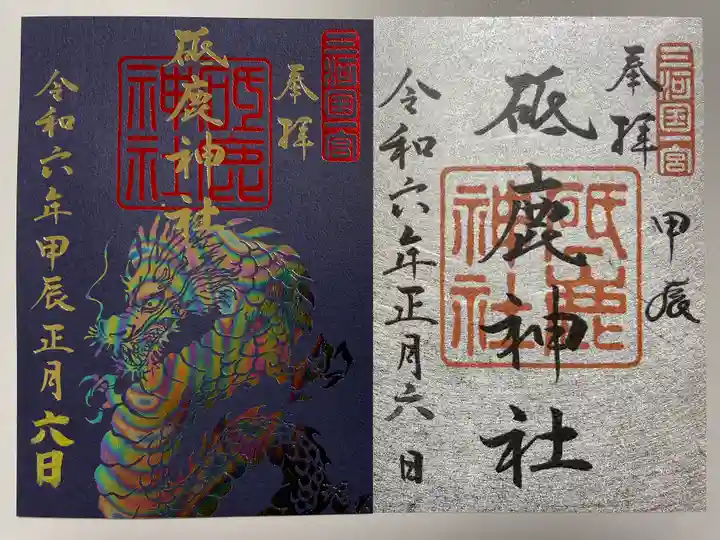 三河国一宮
奉拝
砥鹿神社
砥鹿神社
令和六年甲辰正月六日
三河国一宮
奉拝
甲辰
砥鹿神社
砥鹿神社
令和六年正月六日